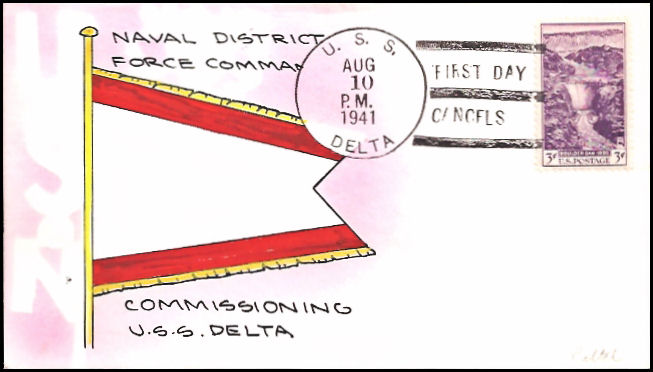 NAVAL DISTRICT
FORCE COMMAN
U. S. S.
AUG
10
P.M.
1941
DELTA
FIRST DAY
CANCELS
BOULDER DAM 1935
3¢ U.S. POSTAGE 3¢
COMMISSIONING
U.S.S. DELTA
USN